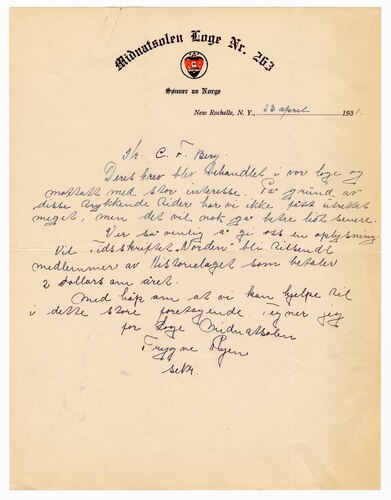 Midnatsolen Loge Nr. 263
Sønner av Norge
New Rochelle, N. Y., 23 april 1931.
Hr. C. F. Berg.
Deres brev blev behandlet i vor loge og
mottatt med stor interesse. På grund av
disse trykkende tider har vi ikke fått utrettet
meget, men det vil nok gå bedre litt senere.
Vær så venlig å gi oss en oplysning.
Vil Tidsskriftet "Norden" bli tilsendt
medlemmer av Historielaget som betaler
2 dollars om året.
Med håp om at vi kan hjelpe til
i dette store foretagende tegner jeg
for Loge Midnatsolen
sekr.